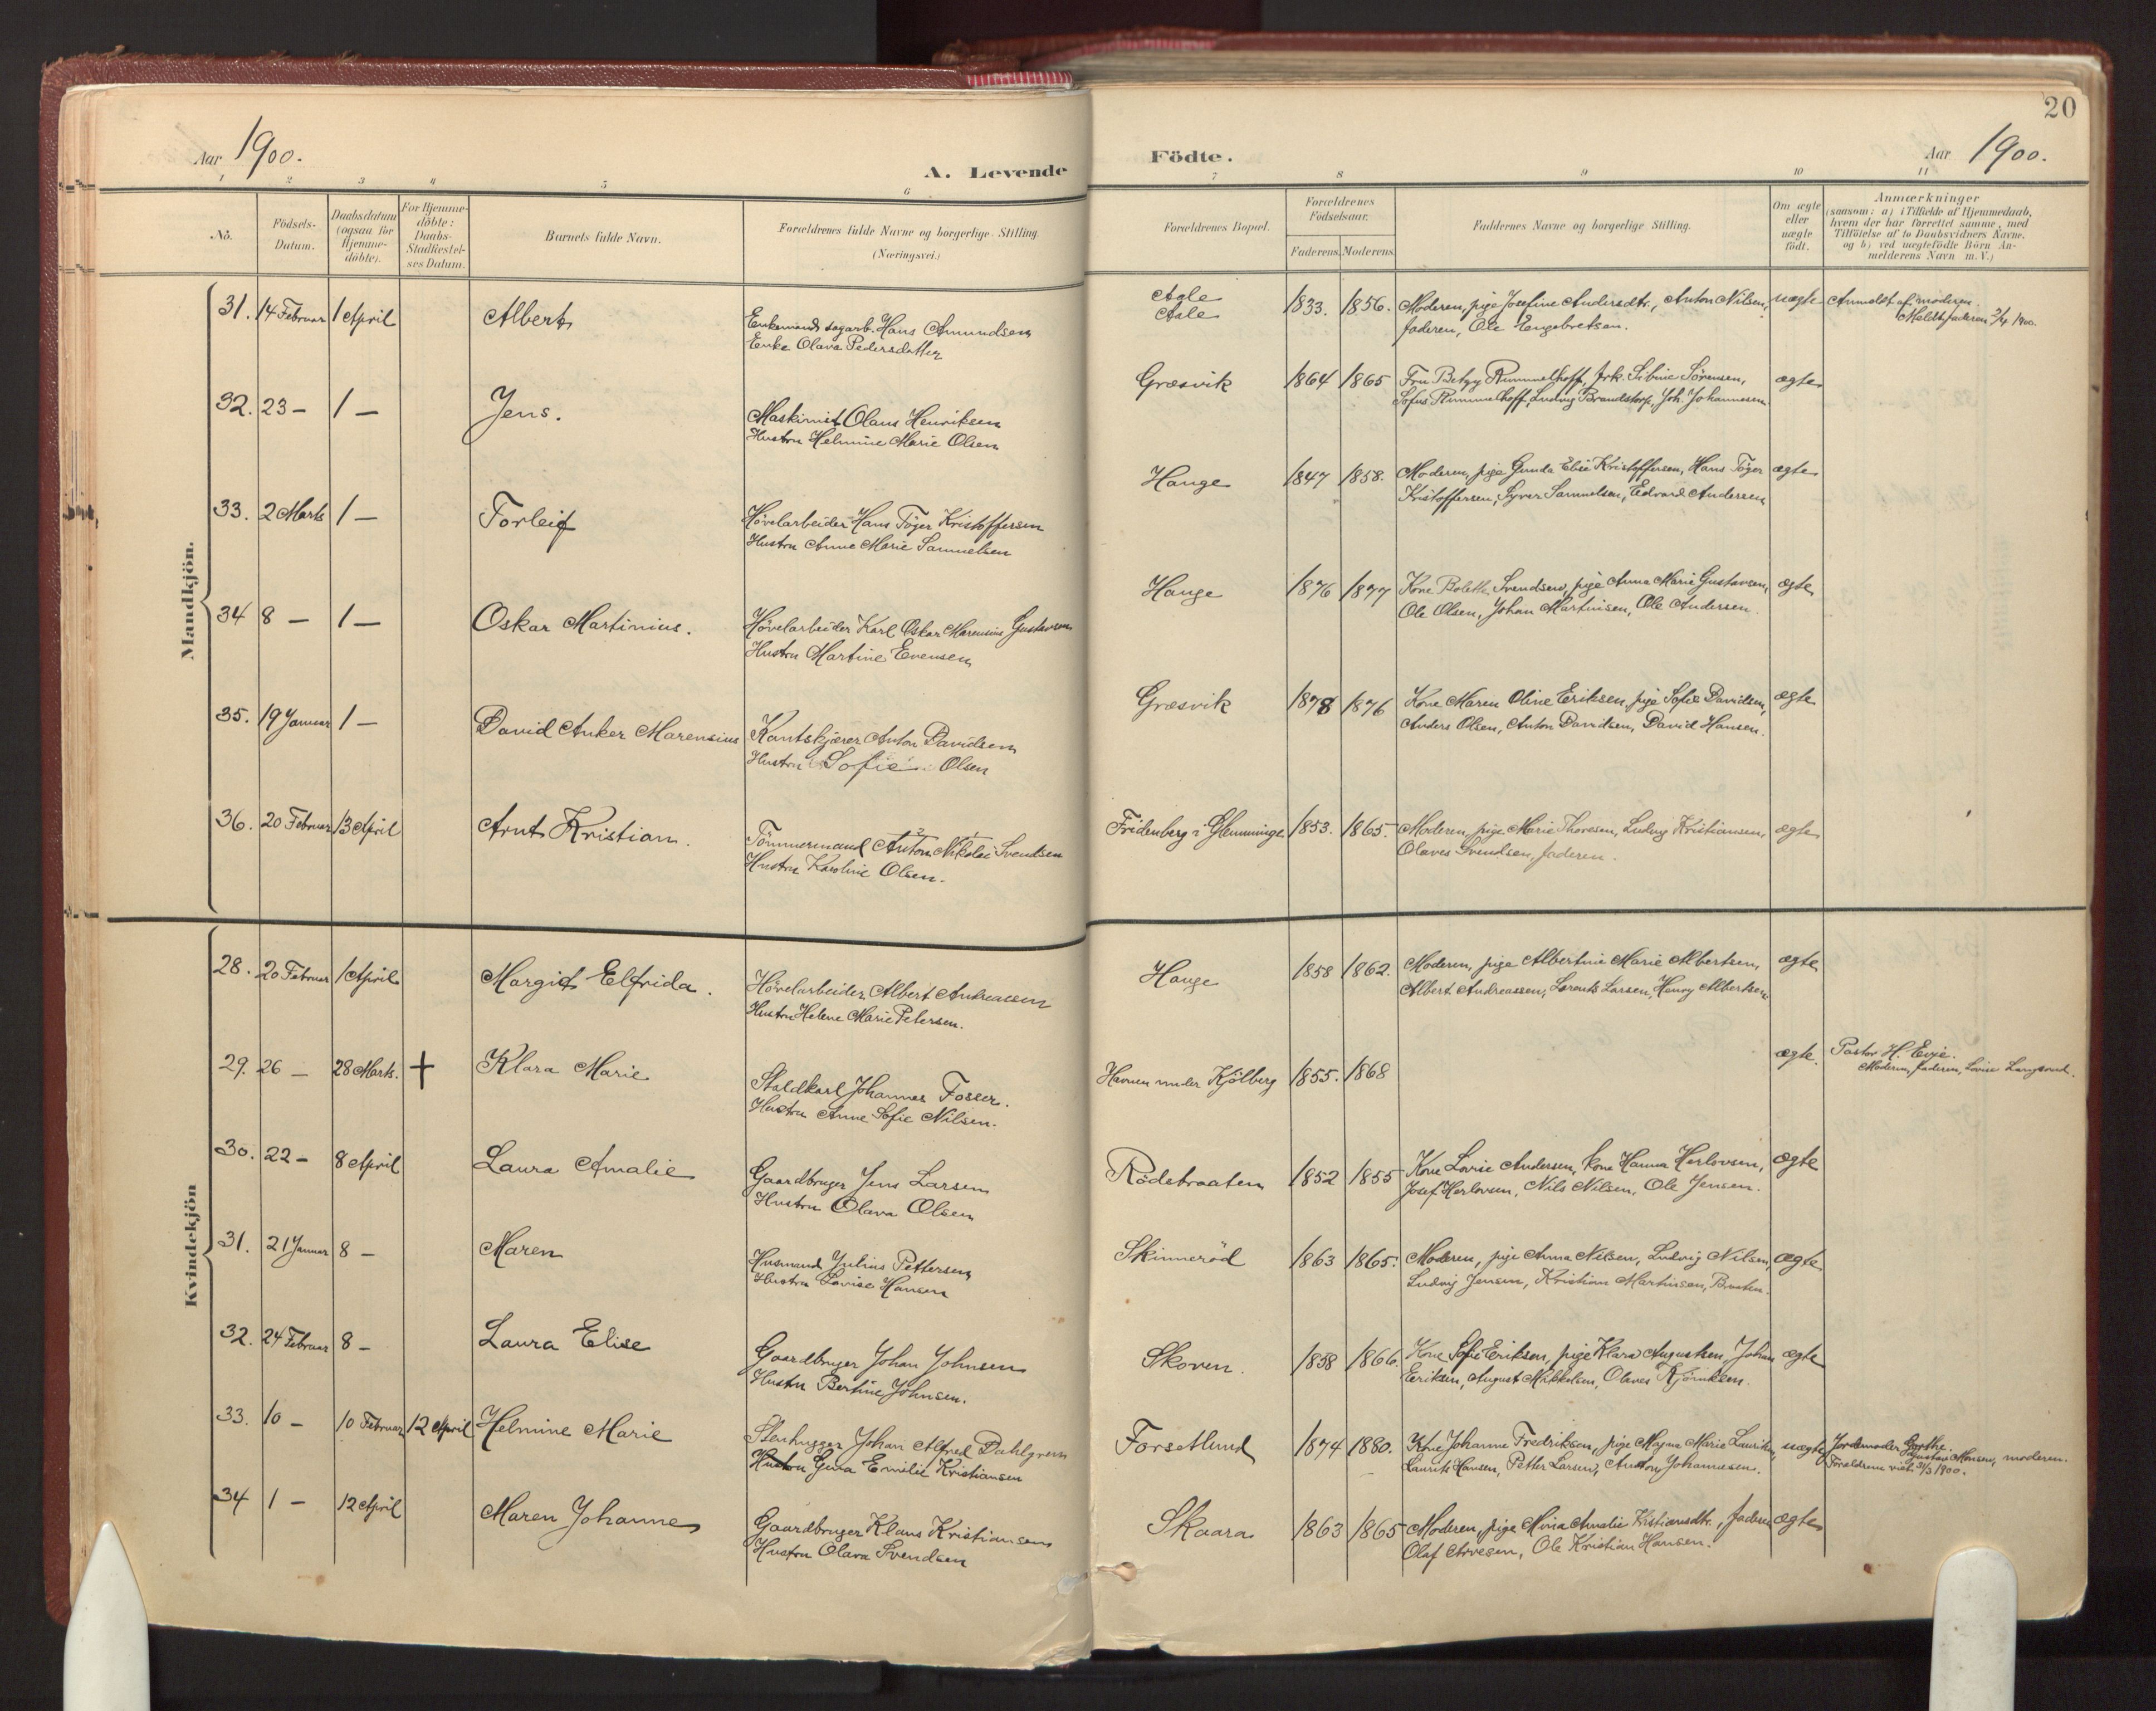 20
Aar 1900.
A. Levende Födte.
Aar 1900.
1 2 3 4 5 6 7 8 9 10 11
No.
Födsels-Datum.
Daabsdatum (ogsaa for Hjemme-döbte).
For Hjemme-döbte: Daabs-Stadfæstel-ses Datum.
Barnets fulde Navn.
Forældrenes fulde Navne og borgerlige Stilling.
(Næringsvei.)
Forældrenes Bopæl.
Forældrenes Födselsaar.
Faderens. Moderens.
Faddernes Navne og borgerlige Stilling.
Om ægte eller uægte födt.
Anmærkninger
(saasom: a) i Tilfælde af Hjemmedaab,
hvem der har forrettet samme, med
Tilföielse af to Daabsvidners Navne.
og b) ved uægtefödte Börn An-
melderens Navn m. V.)
Mandkjön.
31. 14 Februar 1 April Albert
Enkemand sagarb. Hans Amundsen
Enke Olava Pedersdatter
Aale
Aale
1833. 1856.
Moderen, pige Josefine Andersdtr., Anton Nilsen,
faderen, Ole Engebretsen.
uægte
Anmeldt af moderen.
Meldt faderen 2/4 1900.
32. 23 – 1 – Jens.
Maskinist Olaus Henriksen
Hustru Helmine Marie Olsen
Græsvik 1864 1865
Fru Betzy Rummelhoff, frk. Sibine Sörensen,
Sofus Rummelhoff, Ludvig Brandstorp, Joh. Johannesen.
ægte
33. 2 Marts 1 – Torleif
Hövelarbeider Hans Töger Kristoffersen
Hustru Anne Marie Samuelsen
Hauge 1847 1858.
Moderen, pige Gunda Elise Kristoffersen, Hans Töger
Kristoffersen, Syver Samuelsen, Edvard Andersen
ægte
34 8 – 1 – Oskar Martinius.
Hövelarbeider Karl Oskar Marensius Gustavsen
Hustru Martine Evensen
Hauge 1876 1877
Kone Bolette Svendsen, pige Anna Marie Gustavsen,
Ole Olsen, Johan Martinisen, Ole Andersen.
ægte
35. 19 Januar 1 – David Anker Marensius
Kantskjærer Anton Davidsen
Hustru Sofie Olsen
Græsvik 1878 1876
Kone Maren Oline Eriksen, pige Sofie Davidsen,
Anders Olsen, Anton Davidsen, David Hansen.
ægte
36. 20 Februar 13 April Arnt Kristian.
Tömmermand Anton Nikolai Svendsen
Hustru Karoline Olsen.
Fridenberg i Glemminge 1853. 1865.
Moderen, pige Marie Thoresen, Ludvig Kristiansen,
Olaves Svendsen, faderen.
ægte
Kvindekjön
28. 20 Februar 1 April Margit Elfrida.
Hövelarbeider Albert Andreassen
Hustru Helene Marie Petersen.
Hauge 1858 1862.
Moderen, pige Albertine Marie Albertsen,
Albert Andreassen, Lorents Larsen, Henry Albertsen.
ægte
29. 26 – 28 Marts. + Klara Marie
Staldkarl Johannes Fosser.
Hustru Anne Sofie Nilsen.
Havnen under Kjölberg 1855. 1868
ægte.
Pastor H. Evje.
Moderen, faderen, Lovise Langsrud.
30. 22 – 8 April Laura Amalie
Gaardbruger Jens Larsen
Hustru Olava Olsen
Rödsbraaten 1852 1855
Kone Lovise Andersen, kone Hanna Herlovsen,
Josef Herlovsen, Nils Nilsen, Ole Jensen.
ægte
31. 21 Januar 8 – Maren
Husmand Julius Pettersen
Hustru Lovise Hansen
Skinneröd 1863 1865.
Moderen, pige Anna Nilsen, Ludvig Nilsen,
Ludvig Jensen, Kristian Martinsen, Braaten.
ægte
32. 24 Februar 8 – Laura Elise
Gaardbruger Johan Johnsen
Hustru Bertine Johnsen.
Skoven. 1858 1866.
Kone Sofie Eriksen, pige Klara Augustsen, Johan
Eriksen, August Mikkelsen, Olaves
ægte
33. 10 – 10 Februar 12 April Helmine Marie
Stenhugger Johan Alfred Dahlgren
Hustru Gina Emilie Kristiansen
Forsetlund 1874 1880.
Kone Johanne Fredriksen, pige Magna Marie
Laurits Hansen, Petter Larsen, Anton Johannesen.
uægte
Jordemoder Gusta Hansen, moderen.
Forældrene viet 31/3 1900.
34 1 – 12 April Maren Johanne
Gaardbruger Klaus Kristiansen
Hustru Olava Svendsen
Skaara 1863 1865
Moderen, pige Mina Amalie Kristiansdtr., faderen
Olaf Arvesen, Ole Kristian Hansen.
ægte